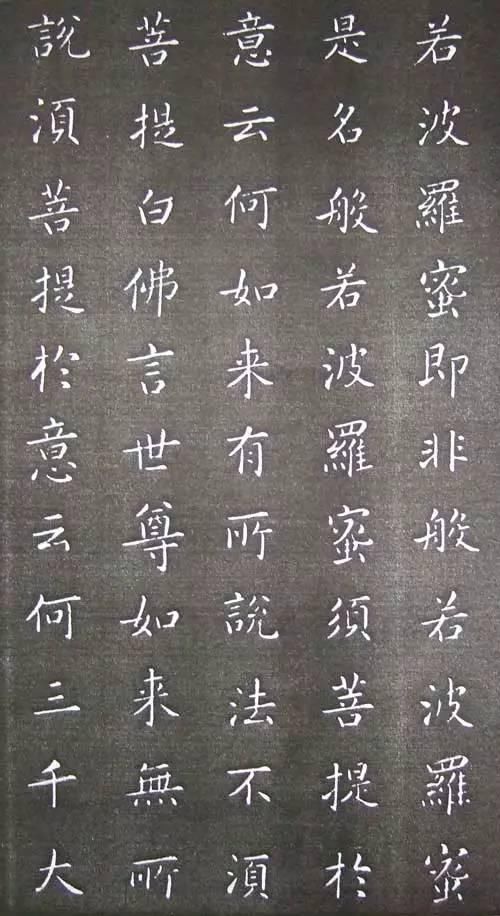 若波羅蜜即非般若波羅蜜
是名般若波羅蜜須菩提於
意云何如来有所說法不須
菩提白佛言世尊如来無所
說須菩提於意云何三千大